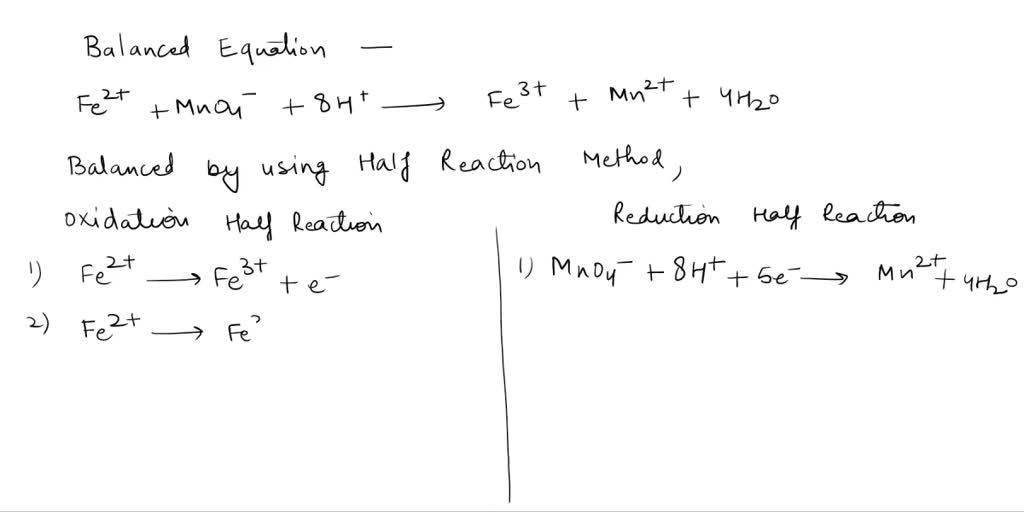 Balanced Equation —
Fe²⁺ + MnO₄⁻ + 8H⁺ ⟶ Fe³⁺ + Mn²⁺ + 4H₂O
Balanced by using Half Reaction Method,
Oxidation Half Reaction
1) Fe²⁺ ⟶ Fe³⁺ + e⁻
2) Fe²⁺ ⟶ Fe
Reduction Half Reaction
1) MnO₄⁻ + 8H⁺ + 5e⁻ ⟶ Mn²⁺ + 4H₂O